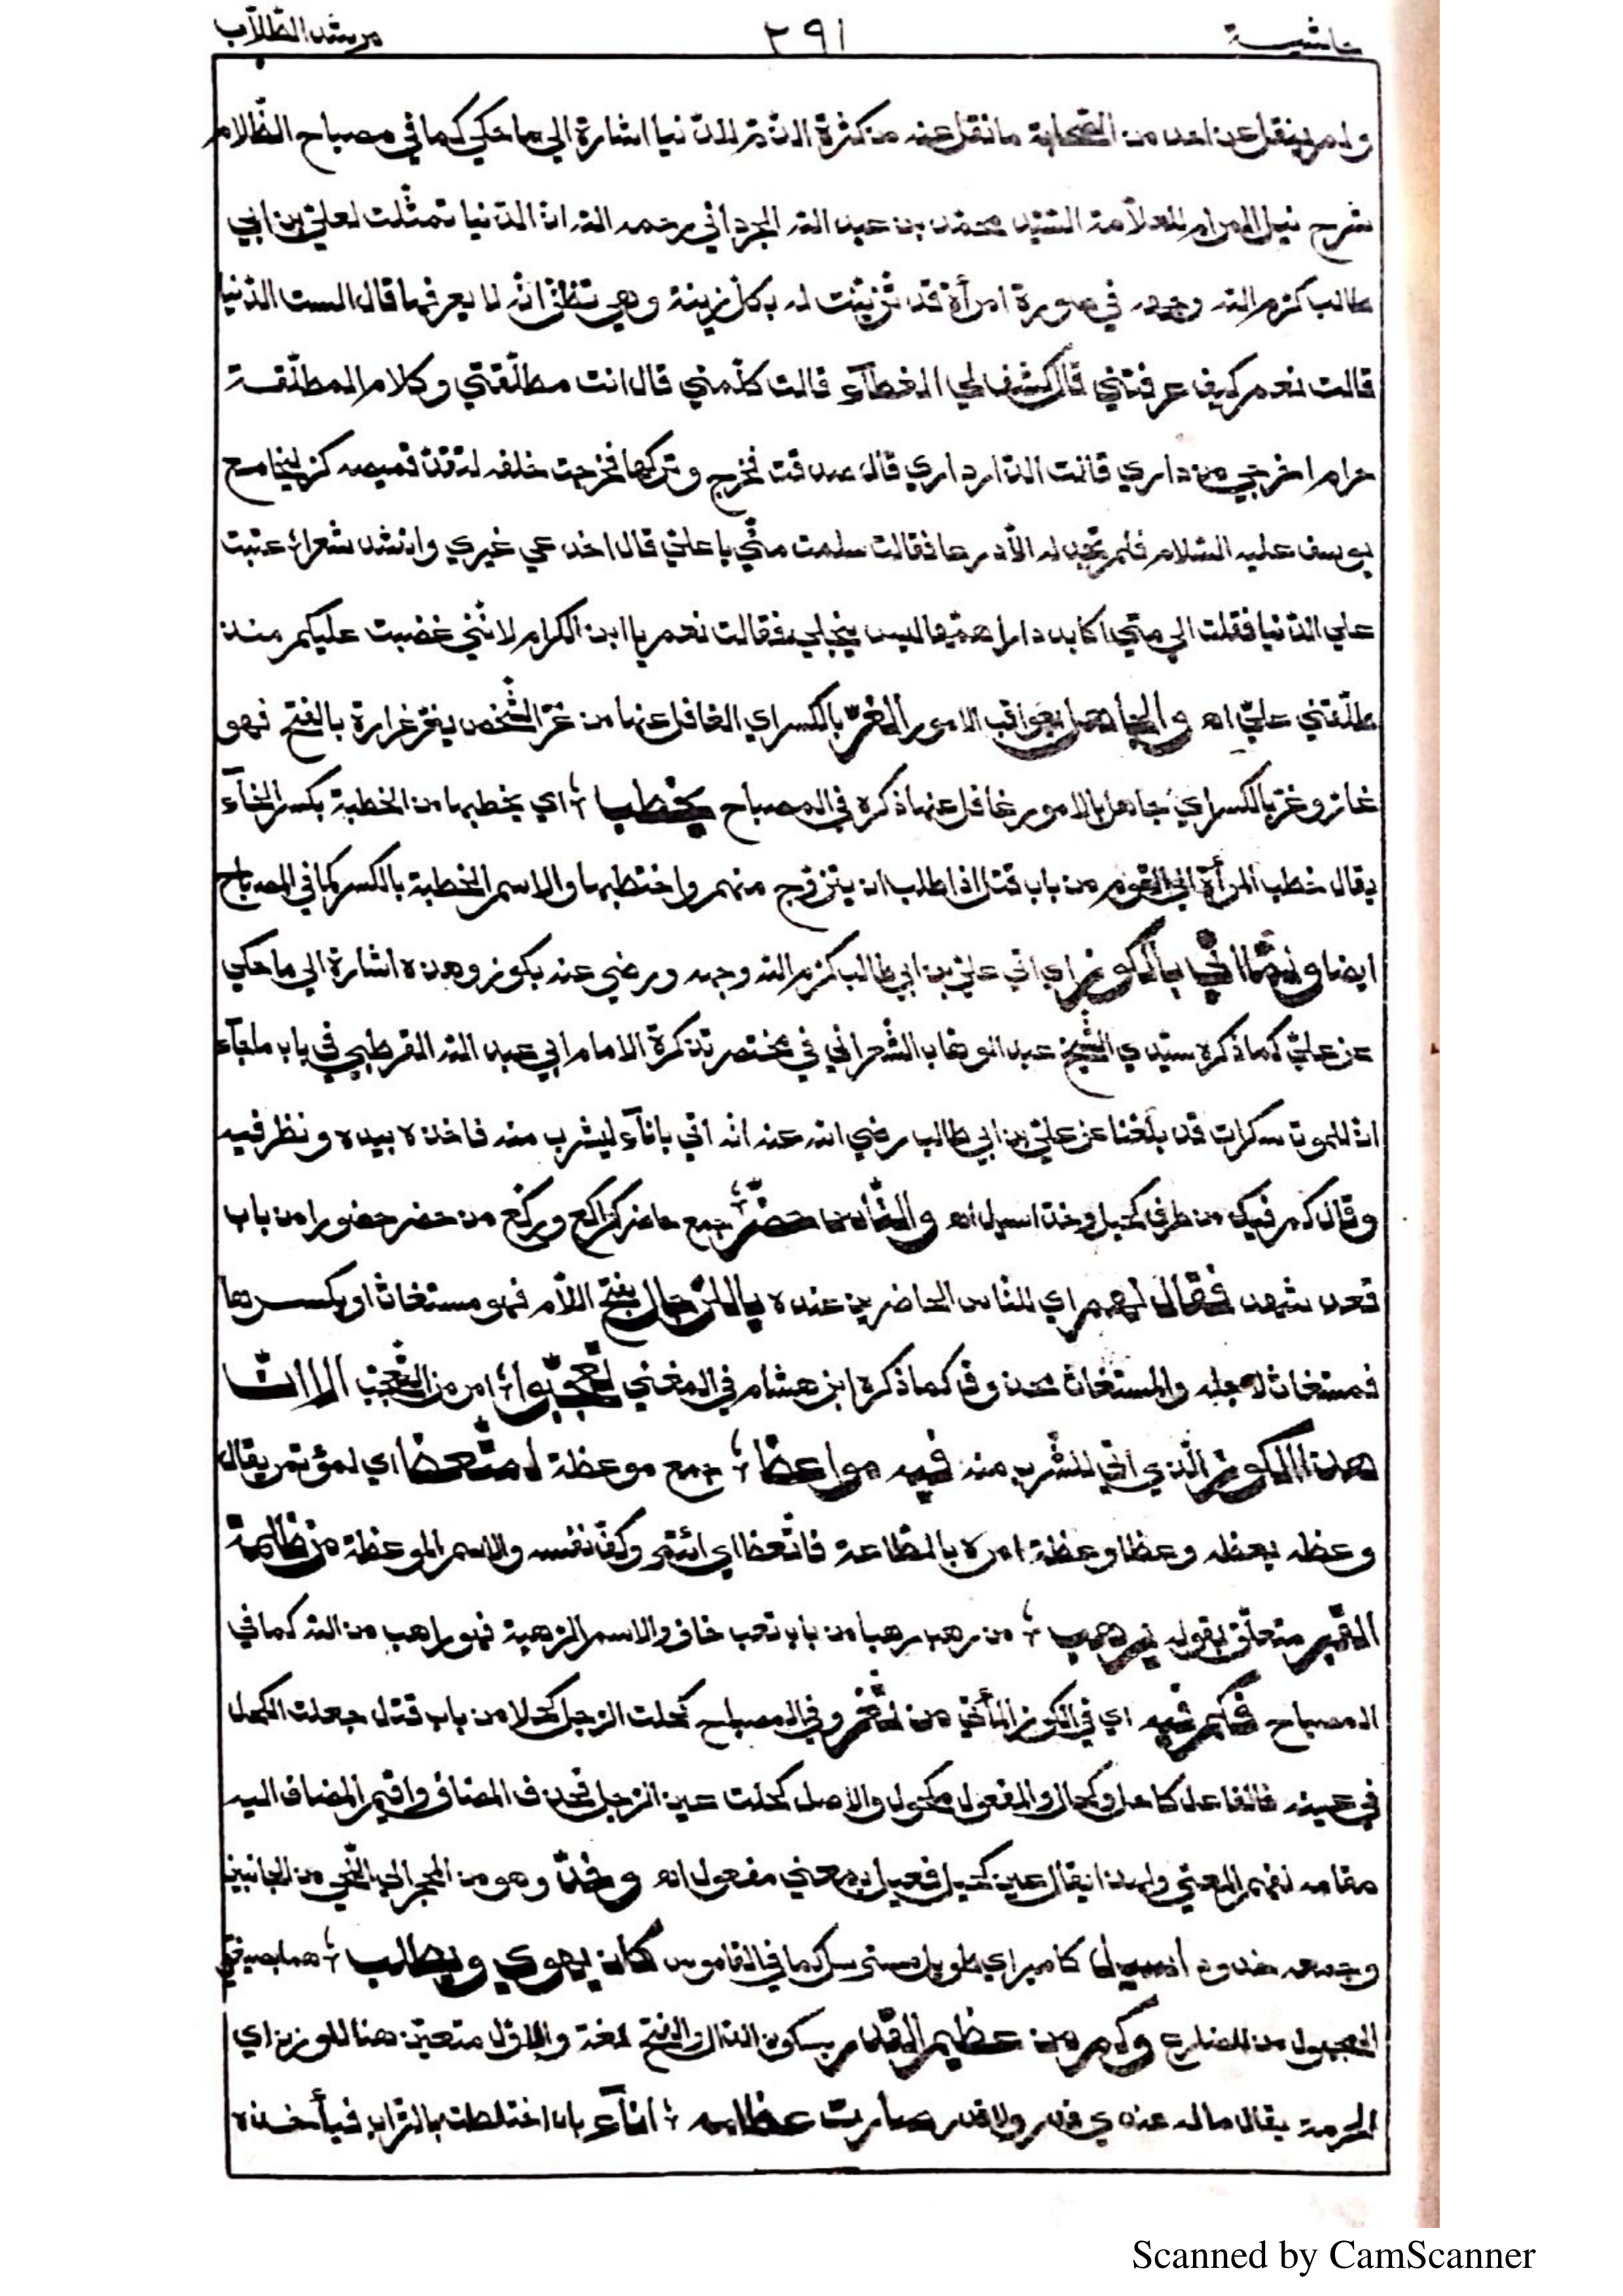 حاشية ٢٩١ مرشد الطّلّاب
ولم ينقل عن احد من الصّحابة ما نقل عنه من كثرة الذّمّ للدّنيا اشارة الي ما حكي كما في مصباح الظّلام
شرح نيل المرام للعلّامة السّيّد محمّد بن عبد الله الجرداني رحمه الله انّ الدّنيا تمثّلت لعليّ بن ابي
طالب كرّم الله وجهه في صورة امرأة قد تزيّنت له بكلّ زينة وهي تظنّ انّه لا يعرفها قال الست الدّنيا
قالت نعم كيف عرفتني قال كشف لي الغطآء قالت كلّمني قال انت مطلّقتي وكلام المطلّقة
حرام اخرجي من داري قالت الدّار داري قال صدقت فخرج وتركها فخرجت خلفه لتقدّ قميصه كزليخا مع
يوسف عليه السّلام فلم تجد له الّا درعا فقالت سلمت منّي يا عليّ قال اخدعي غيري وانشد شعرا؛ عتبت
علي الدّنيا فقلت الي متي؛ اكابد دامرا همّها ليس ينجلي؛ فقالت نعم يا ابن الكرام لانّني غضبت عليكم منذ
طلّقني عليّ اه والجاهل بعواقب الامور الغرّ بالكسر اي الغافل عنها من غرّ الشّخص يغرّ غرارة بالفتح فهو
غارّ وغرّ بالكسر اي جاهل بالامور غافل عنها ذكره في المصباح يخطب؛ اي يخطبها من الخطبة بكسر الخآء
يقال خطب المرأة الي القوم من باب قتل اذا طلب ان يتزوّج منهم واختطبها والاسم الخطبة بالكسر كما في المصباح
ايضا ولمّا اتي بالكوز اي اتي عليّ بن ابي طالب كرّم الله وجهه ورضي عنه بكوز وهذه اشارة الي ما حكي
عن عليّ كما ذكره سيّدي الشّيخ عبد الوهّاب الشّعراني في مختصر تذكرة الامام ابي عبد الله القرطبي في باب ما جآء
انّ للموت سكرات قد بلغنا عن عليّ بن ابي طالب رضي الله عنه انه اتي بانآء ليشرب منه فاخذه بيده ونظر فيه
وقال كم فيك من طرف كحيل وخدّ اسيل اه والنّاس حضّر؛ جمع حاضر كراكع وركّع من حضر حضورا من باب
قعد شهد فقال لهم اي للنّاس الحاضرين عنده يا للرّجال بفتح اللّام فهو مستغاث او بكسرها
فمستغاث لاجله والمستغاث محذوف كما ذكره ابن هشام في المغني تعجّبوا؛ امر من التّعجّب الا انّ
هذا الكوز الّذي اتي للشّرب منه فيه مواعظ؛ جمع موعظة لمتّعظ اي لمؤتمر يقال
وعظه يعظه وعظا وعظة امره بالطّاعة فاتّعظ اي ائتمر وكفّ نفسه والاسم الموعظة من ظلمة
القبر متعلّق بقوله يرهب؛ من رهب رهبا من باب تعب خاف والاسم الرّهبة فهو راهب من الله كما في
المصباح فكم فيه اي في الكوز المأتيّ من ثغر وفي المصباح كحلت الرّجل كحلا من باب قتل جعلت الكحل
في عينه فالفاعل كاحل وكحال والمفعول مكحول والاصل كحلت عين الرّجل فحذف المضاف واقيم المضاف اليه
مقامه لفهم المعني ولهذا يقال عين كحيل فعيل بمعني مفعول اه وخدّ وهو من المحجر الي اللّحي من الجانبين
وجمعه خدود اسيل كامير اي طويل مسترسل كما في القاموس كان يهوي ويطلب؛ هما بصيغتي
المجهول من المضارع وكم من عظيم القدر بسكون الدّال والفتح لغة والاوّل متعيّن هنا للوزن اي
الحرمة يقال ما له عندي قدر ولا قدر صارت عظامه؛ انآء بان اختلطت بالتّراب فيأخذه
Scanned by CamScanner